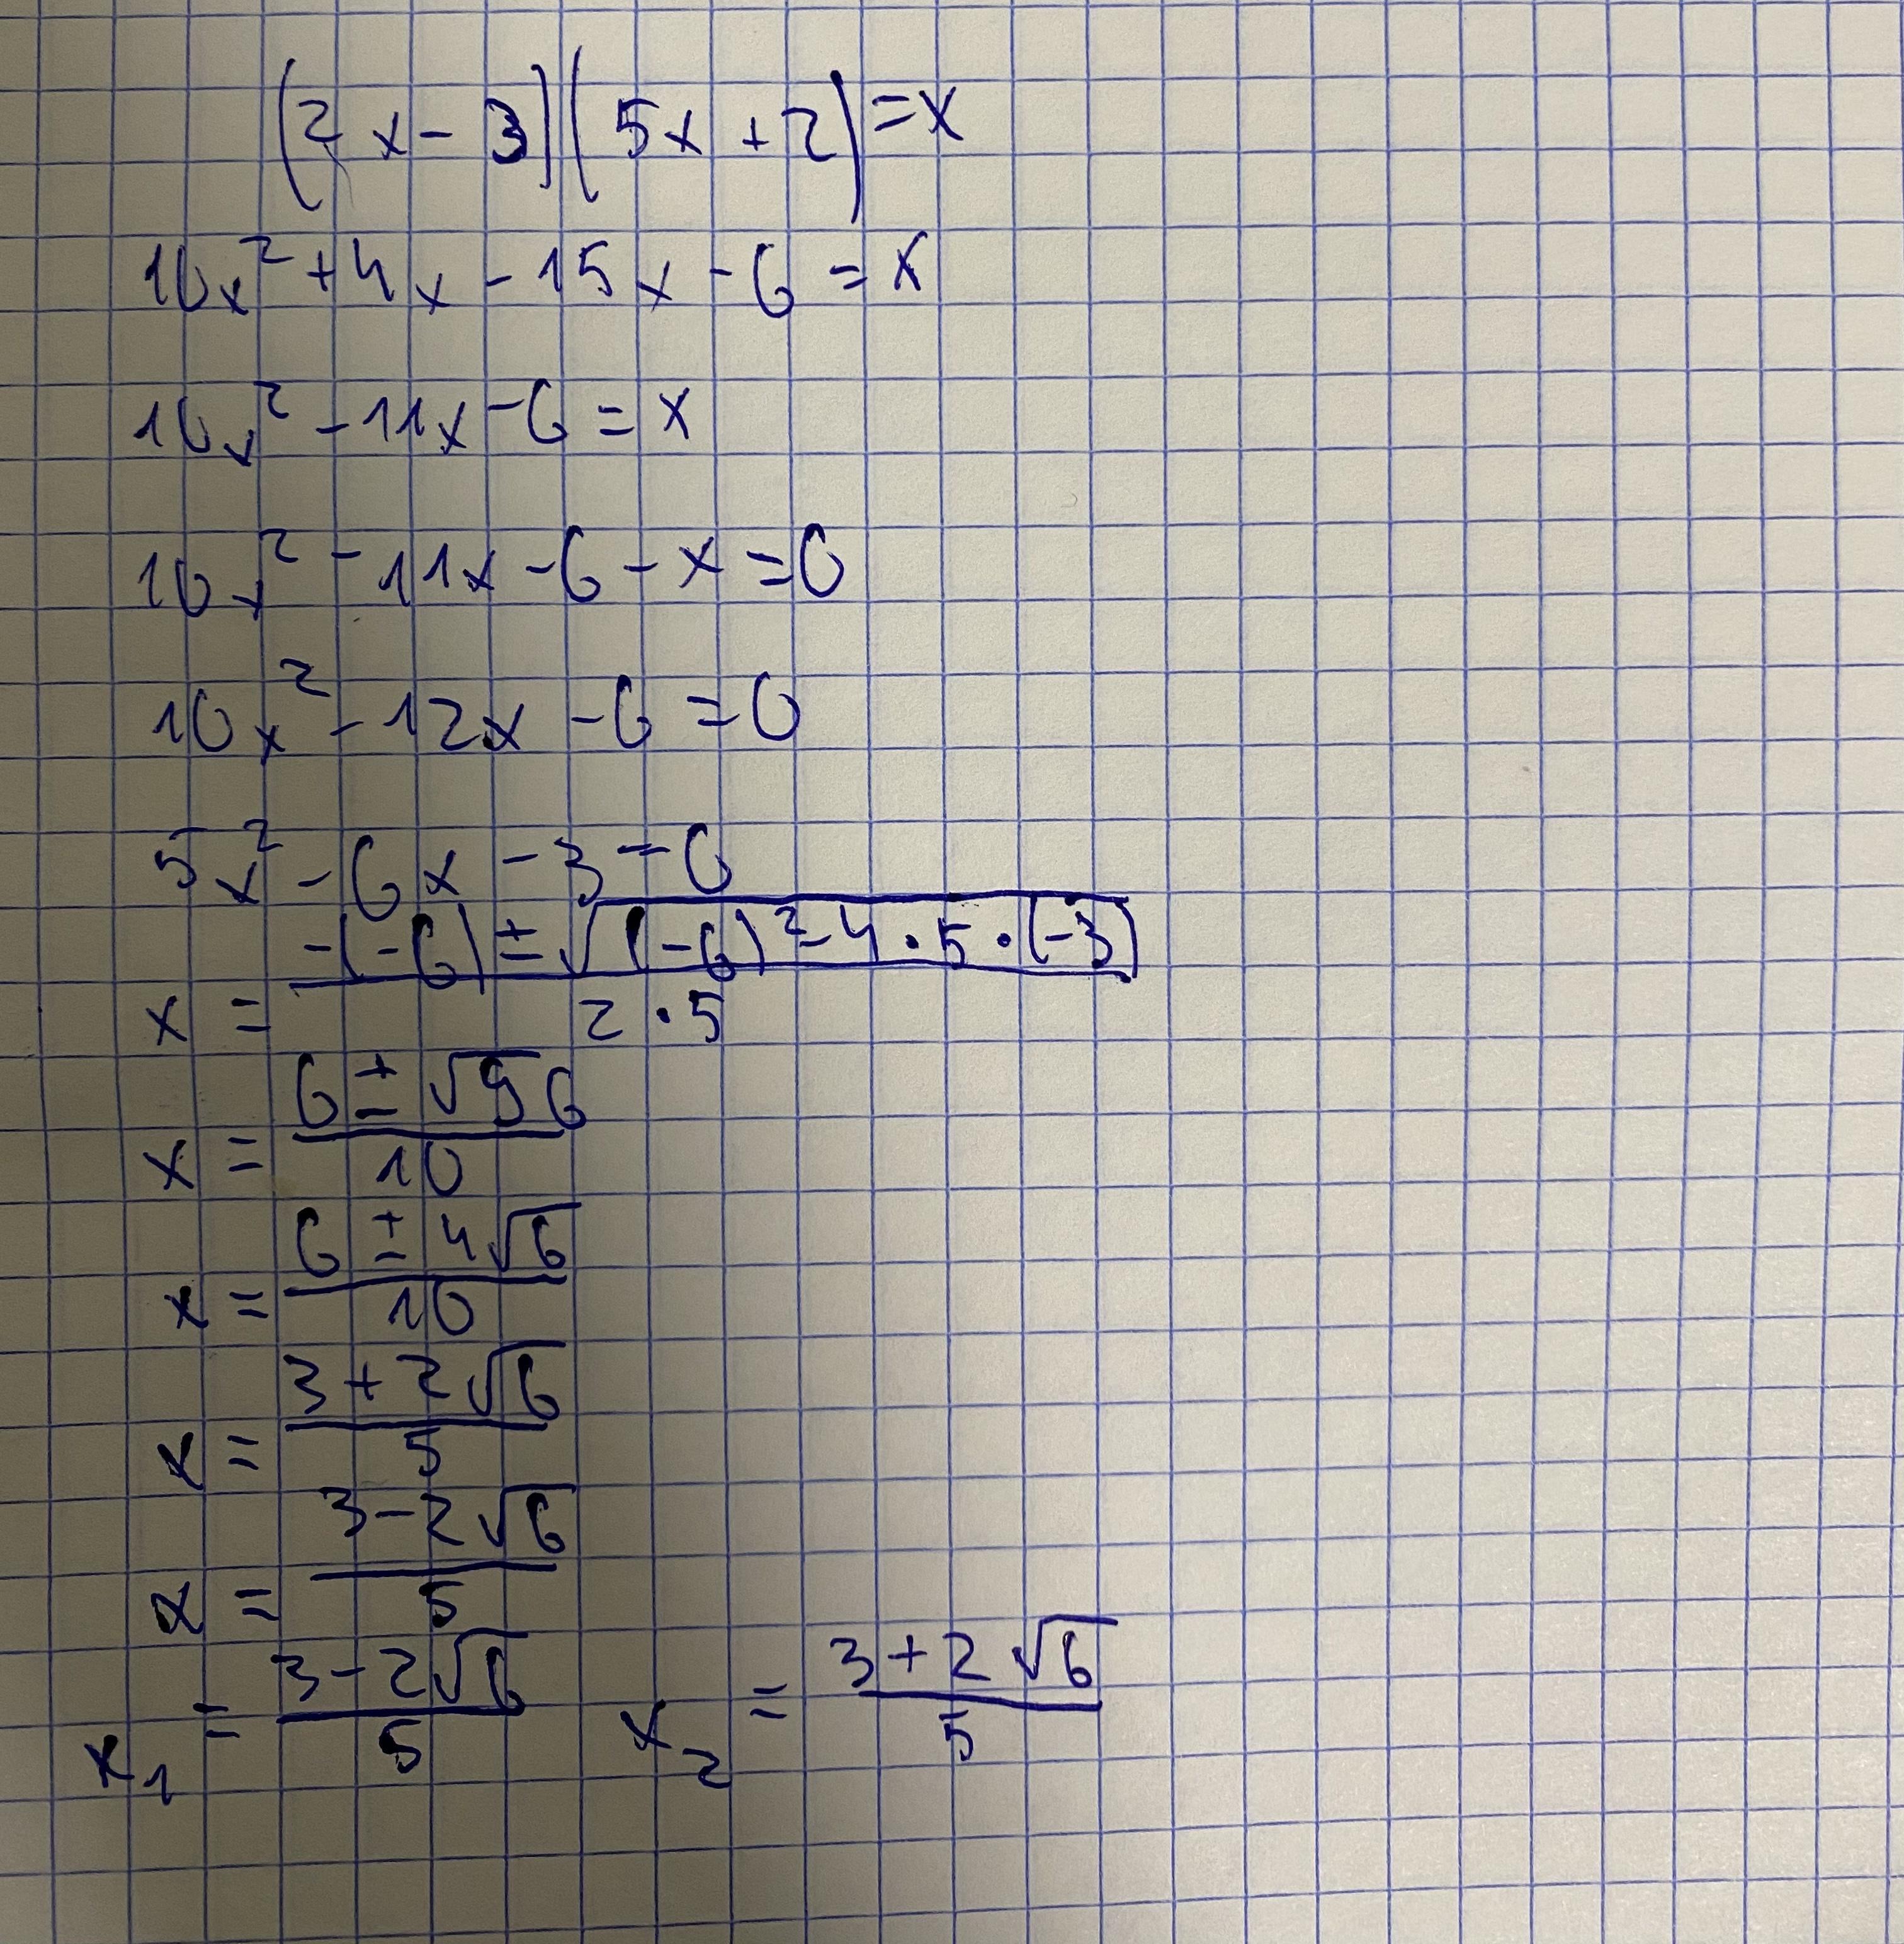 (2x - 3)(5x + 2) = x
10x² + 4x - 15x - 6 = x
10x² - 11x - 6 = x
10x² - 11x - 6 - x = 0
10x² - 12x - 6 = 0
5x² - 6x - 3 = 0
x = (-(-6) ± √((-6)² - 4 · 5 · (-3))) / (2 · 5)
x = (6 ± √96) / 10
x = (6 ± 4√6) / 10
x = (3 + 2√6) / 5
x = (3 - 2√6) / 5
x₁ = (3 - 2√6) / 5 x₂ = (3 + 2√6) / 5